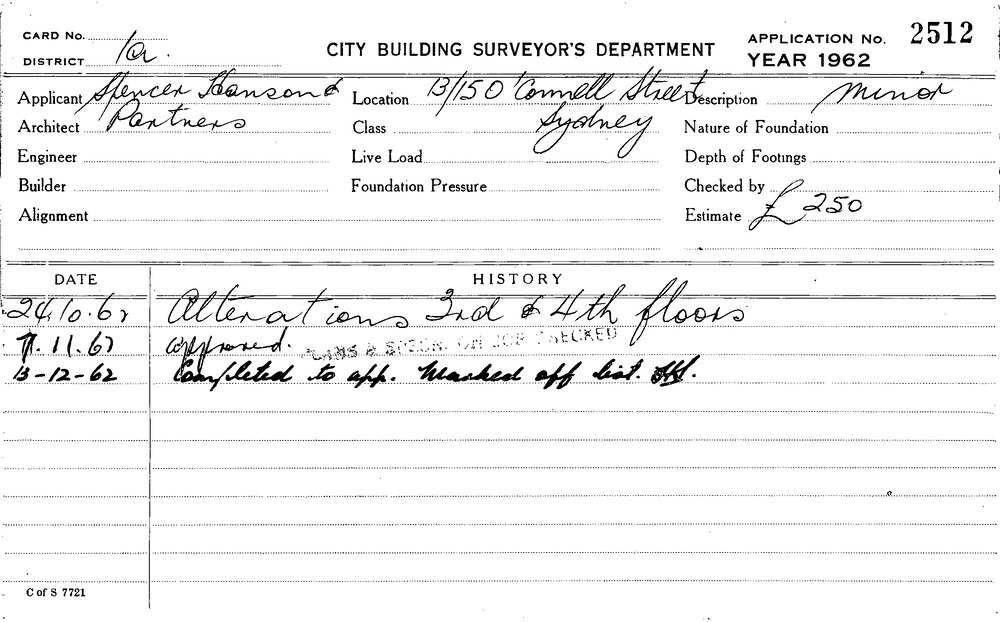 CARD No.
DISTRICT 1a.
CITY BUILDING SURVEYOR'S DEPARTMENT
APPLICATION No. 2512
YEAR 1962
Applicant Spencer Hanson &
Architect Partners
Engineer
Builder
Alignment
Location 13/15 O'Connell Street
Class Sydney
Live Load
Foundation Pressure
Description Minor
Nature of Foundation
Depth of Footings
Checked by
Estimate £250
DATE HISTORY
24.10.62 Alterations 3rd & 4th floors
7.11.62 approved. PLANS & SPECN. ON JOB CHECKED
13-12-62 Completed to app. Marked off list.
C of S 7721